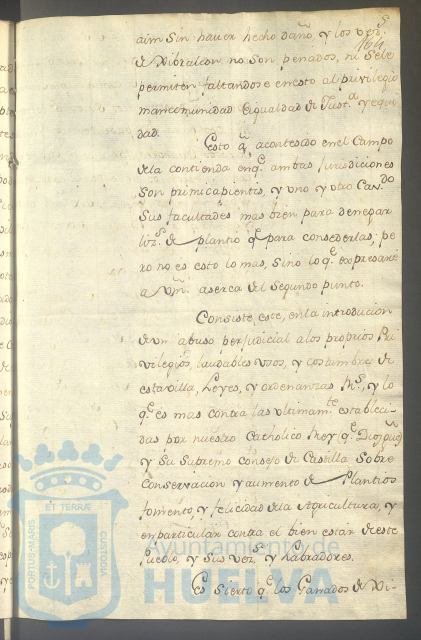 164
aim sin haver hecho daño, y los vez.s
de Xibraleon no son penados, ni sele
permiten faltandose en esto al privilegio
mancomunidad e igualdad de Just.a y equi
dad.
Esto q.e acontesado en el Campo
dela contienda en q.e ambas Jurisdiciones
son primicapientis, y uno y otro Cav.do
sus facultades mas bien para denegar
liz.s de plantio q.e para consederlas; pe
ro no es esto lo mas, sino lo q.e expresaré
a Vm. aserca del segundo punto.
Consiste este, en la introducion
de un abuso perjudicial a los proprios Pri
vilegios, laudables usos, y costumbres de
esta villa, Leyes, y ordenanzas R.s, y lo
q.e es mas contra las ultimam.te estableci-
das por nuestro Catholico Rey (q.e Dios gue)
y su supremo consejo de Castilla sobre
conservacion y aumento de Plantios
fomento, y felicidad dela Agricultura, y
en particular contra el bien estar de este
Pueblo, y sus vez.s y Labradores.
Es sierto q.e los Ganados de Xi-
PORTUS MARIS ET TERRÆ CUSTODIA
Ayuntamiento de
HUELVA